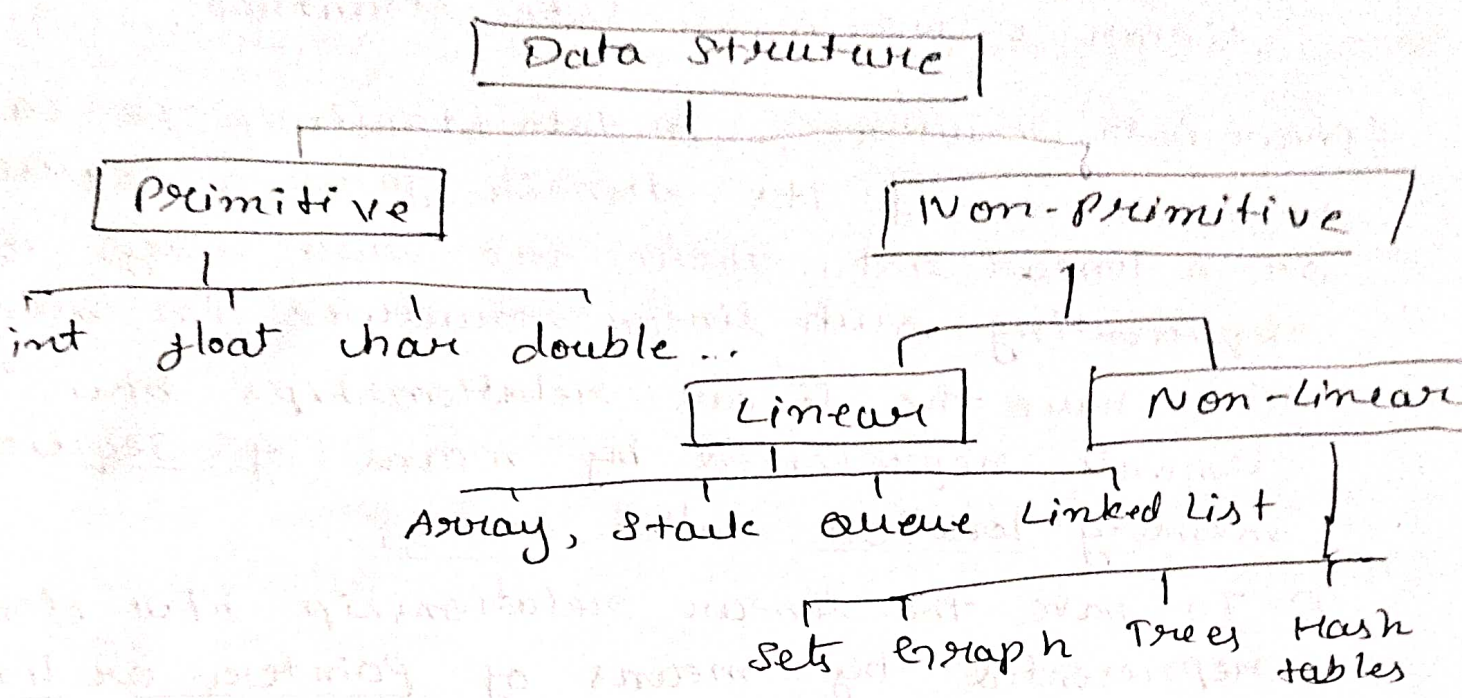 Data Struture
Primitive
Non-Primitive
int float char double...
Linear
Non-Linear
Array, Stack Queue Linked List
Sets Graph Trees Hash
tables